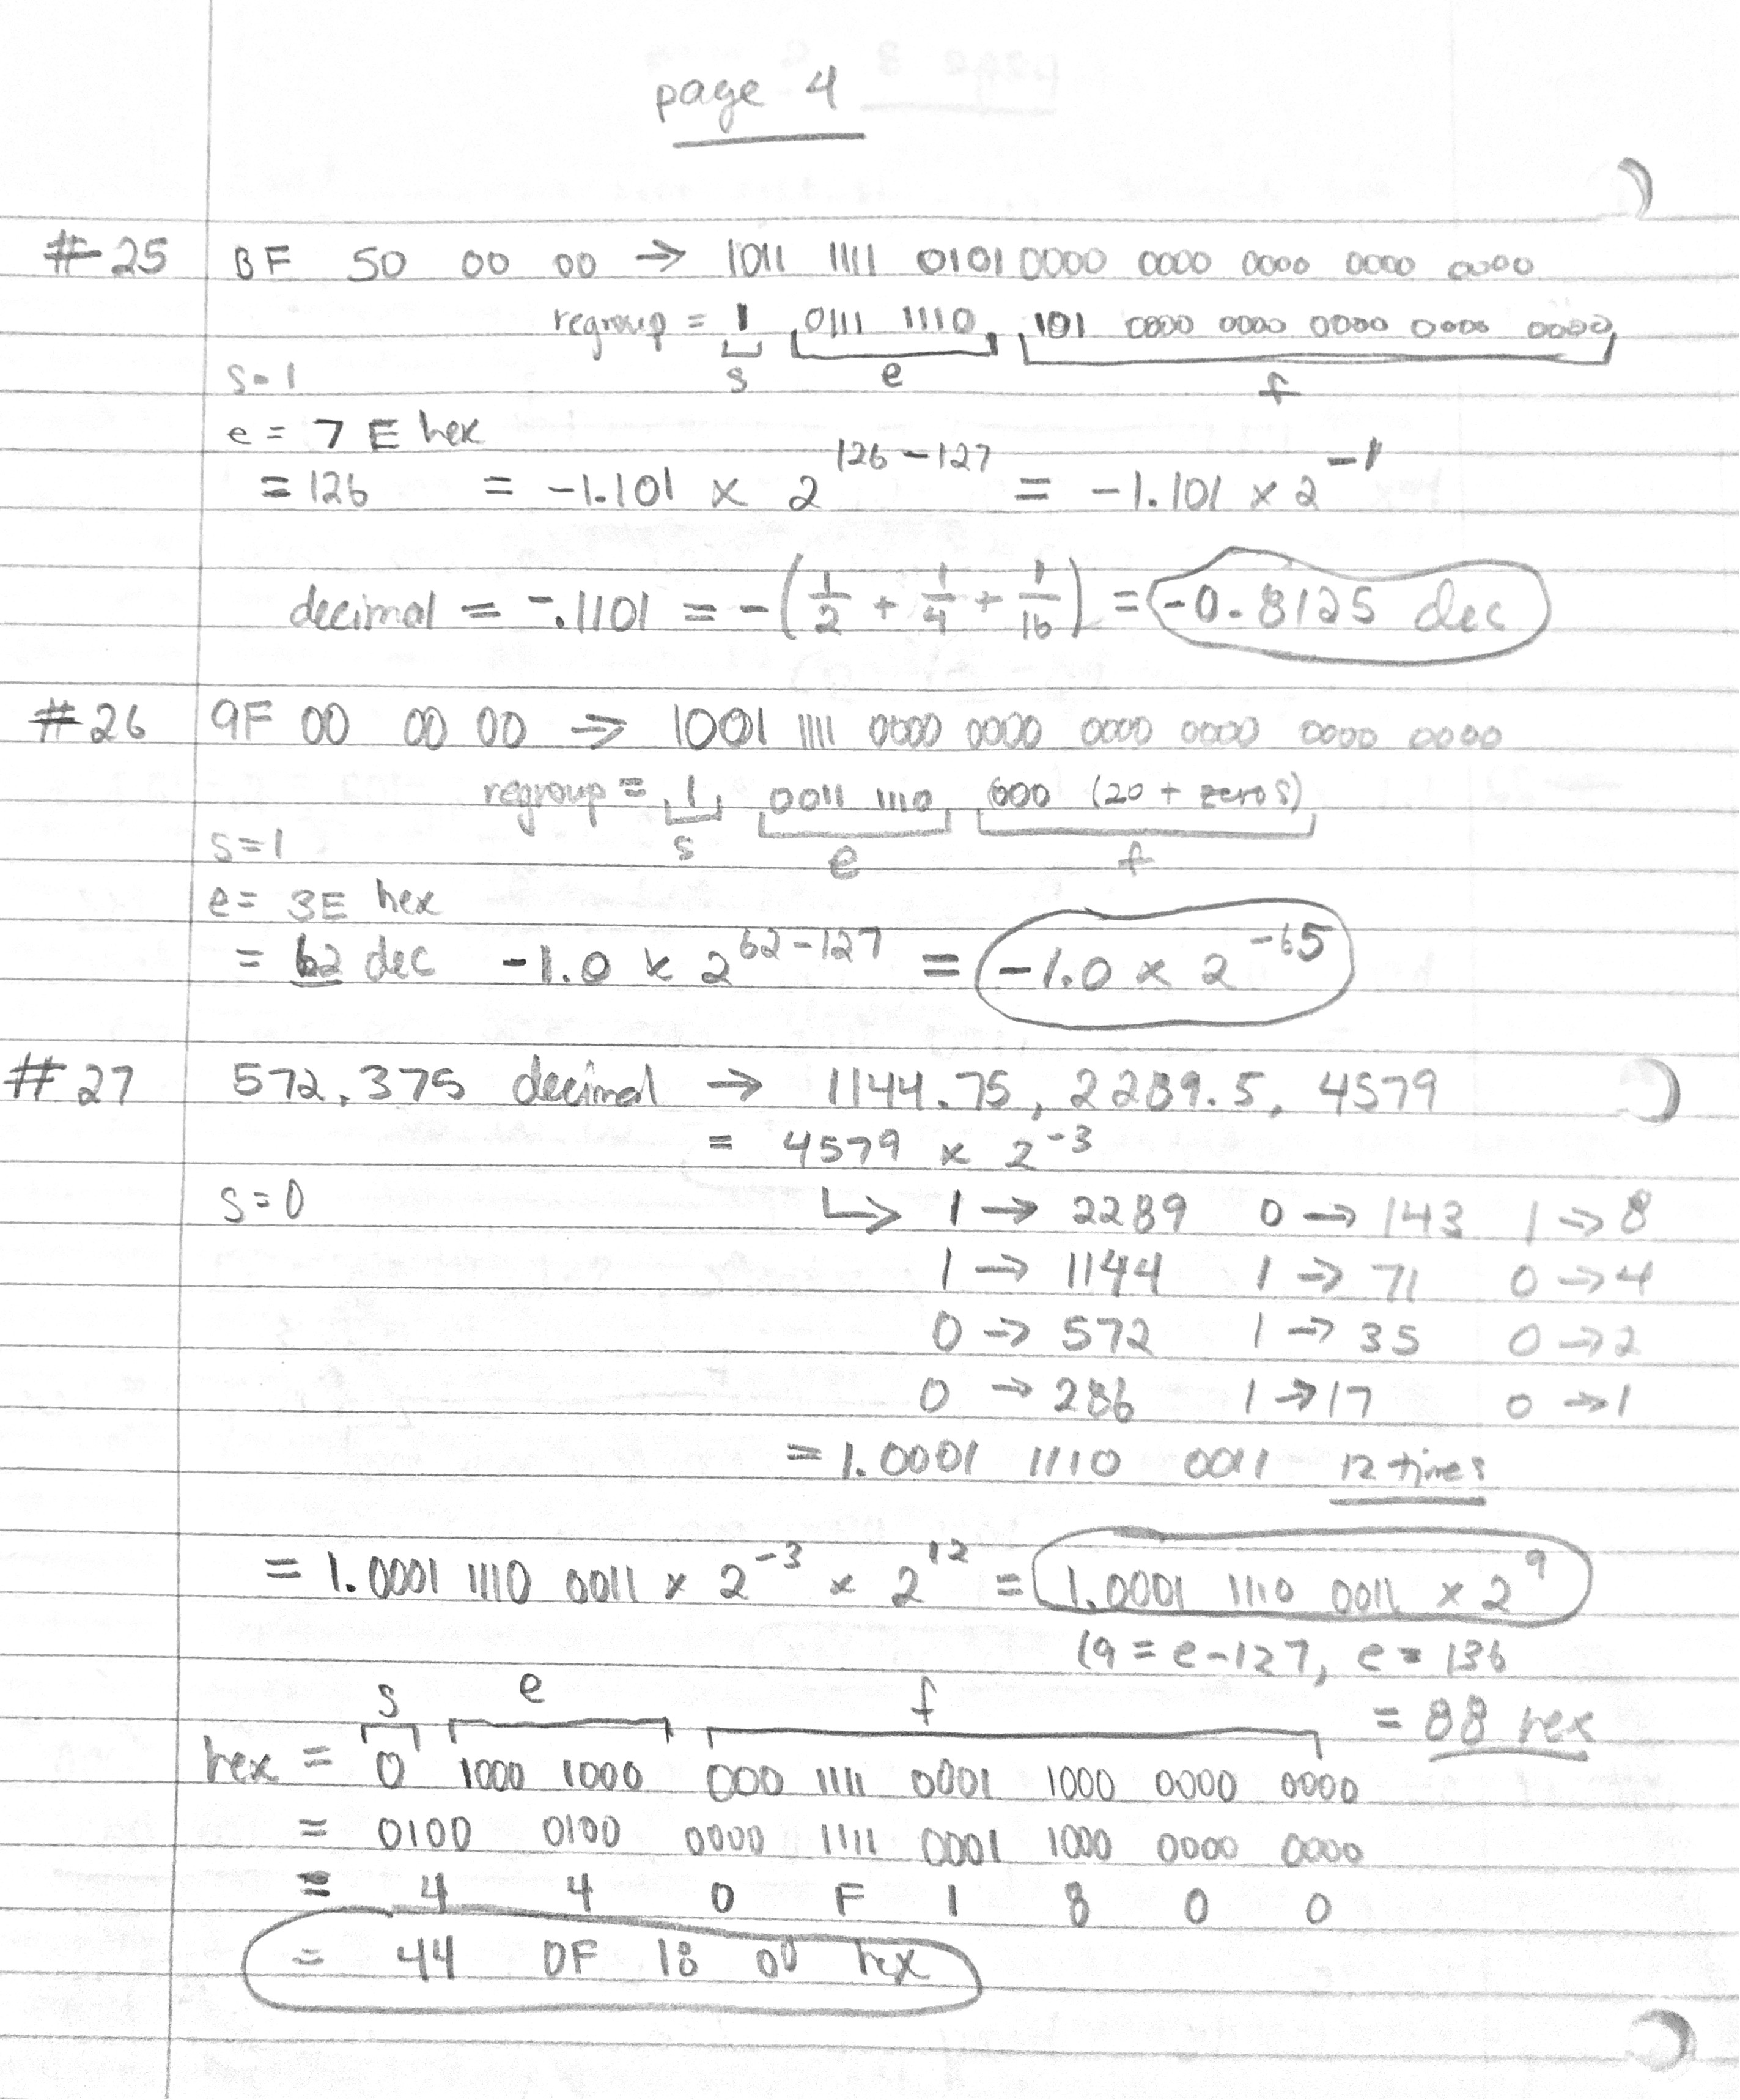 page 4
#25 BF 50 00 00 → 1011 1111 0101 0000 0000 0000 0000 0000
regroup = 1 0111 1110 101 0000 0000 0000 0000 0000
s e f
s=1
e = 7E hex
= 126 = -1.101 x 2^126-127 = -1.101 x 2^-1
decimal = -.1101 = -(1/2 + 1/4 + 1/16) = -0.8125 dec
#26 9F 00 00 00 → 1001 1111 0000 0000 0000 0000 0000 0000
regroup = 1 0011 1110 000 (20 + zeros)
s e f
s=1
e= 3E hex
= 62 dec -1.0 x 2^62-127 = -1.0 x 2^-65
#27 572.375 decimal → 1144.75, 2289.5, 4579
= 4579 x 2^-3
s=0 ↳ 1 → 2289 0 → 143 1 → 8
1 → 1144 1 → 71 0 → 4
0 → 572 1 → 35 0 → 2
0 → 286 1 → 17 0 → 1
= 1.0001 1110 0011 12 times
= 1.0001 1110 0011 x 2^-3 x 2^12 = 1.0001 1110 0011 x 2^9
(9 = e-127, e = 136
= 88 hex
s e f
hex = 0 1000 1000 000 1111 0001 1000 0000 0000
= 0100 0100 0000 1111 0001 1000 0000 0000
= 4 4 0 F 1 8 0 0
= 44 0F 18 00 hex